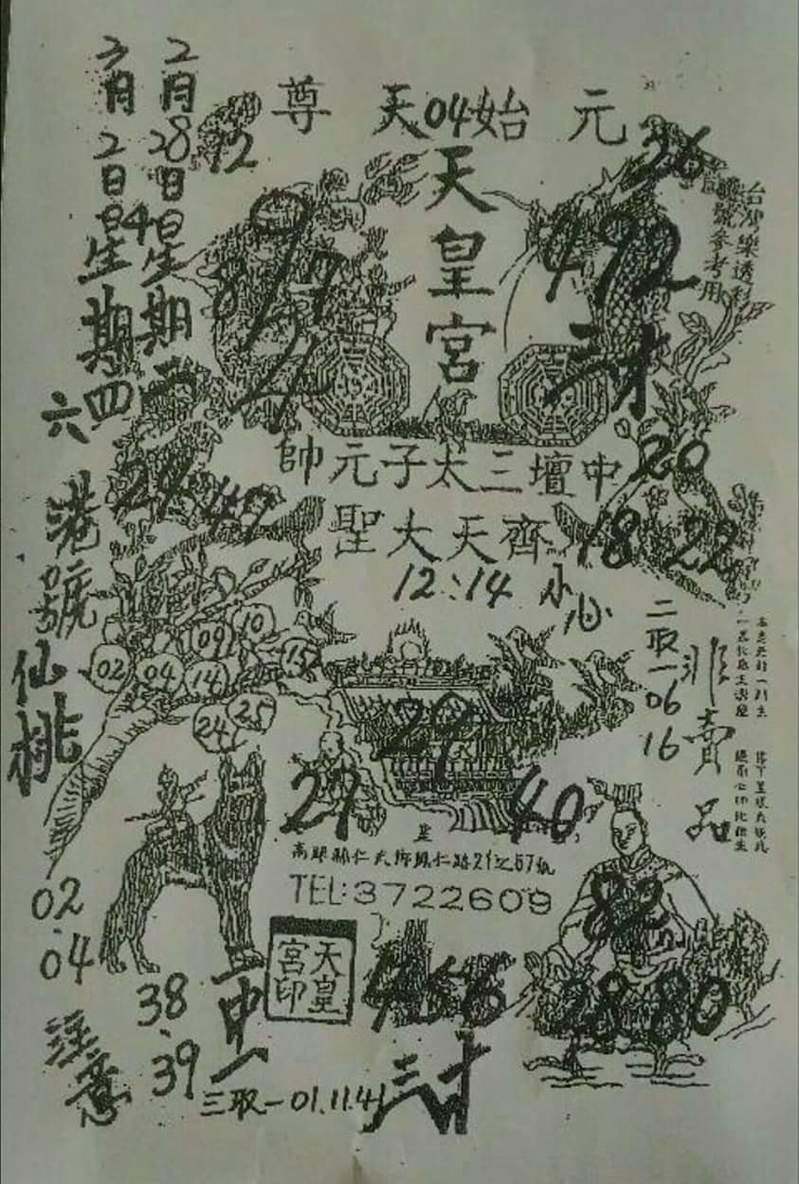 元始04天尊
天皇宮
台灣樂透彩
號參考用
2月28日星期二
3月2日星期四
04
六
12
26
8/7
4
492
三才
中壇三太子元帥
齊天大聖
12:14 小心
20
18 22
29 47
港號仙桃
09 10
02 04 14 15
24 25
二取一06
16
非賣品
29
27
40
82
高雄縣仁武鄉鳳仁路21之67號
TEL:3722609
天皇
宮印
02.04
注意
38.39
二中一
三取一01.11.41
三才
456
28 80